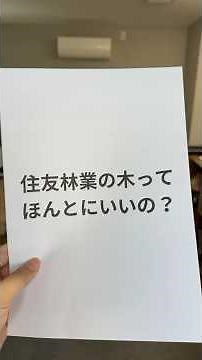 住友林業の木って
ほんとにいいの？